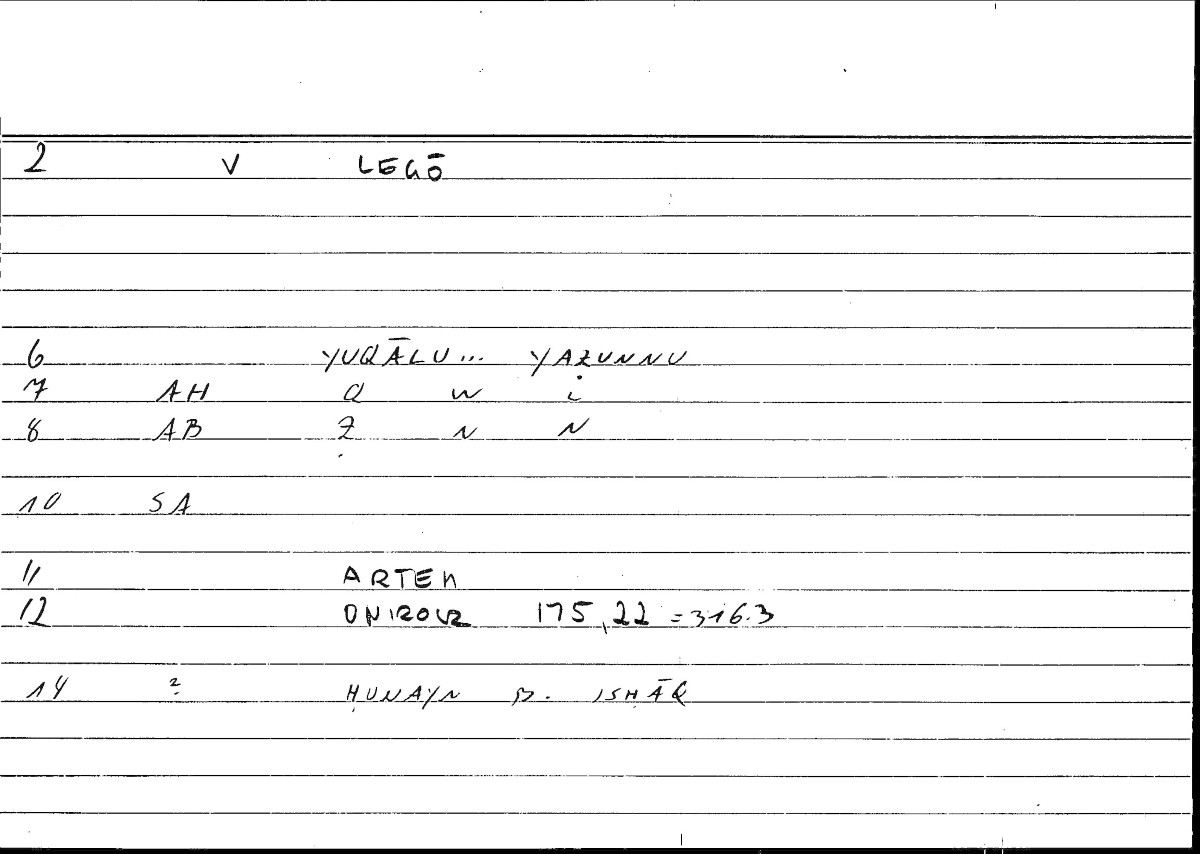 2 V LEGŌ
6 YUQĀLU... YAẒUNNU
7 AH Q W i
8 AB Ẓ N N
10 SA
11 ARTEM
12 ONIROCR 175,22 =316.3
14 2 ḤUNAYN B. ISḤĀQ